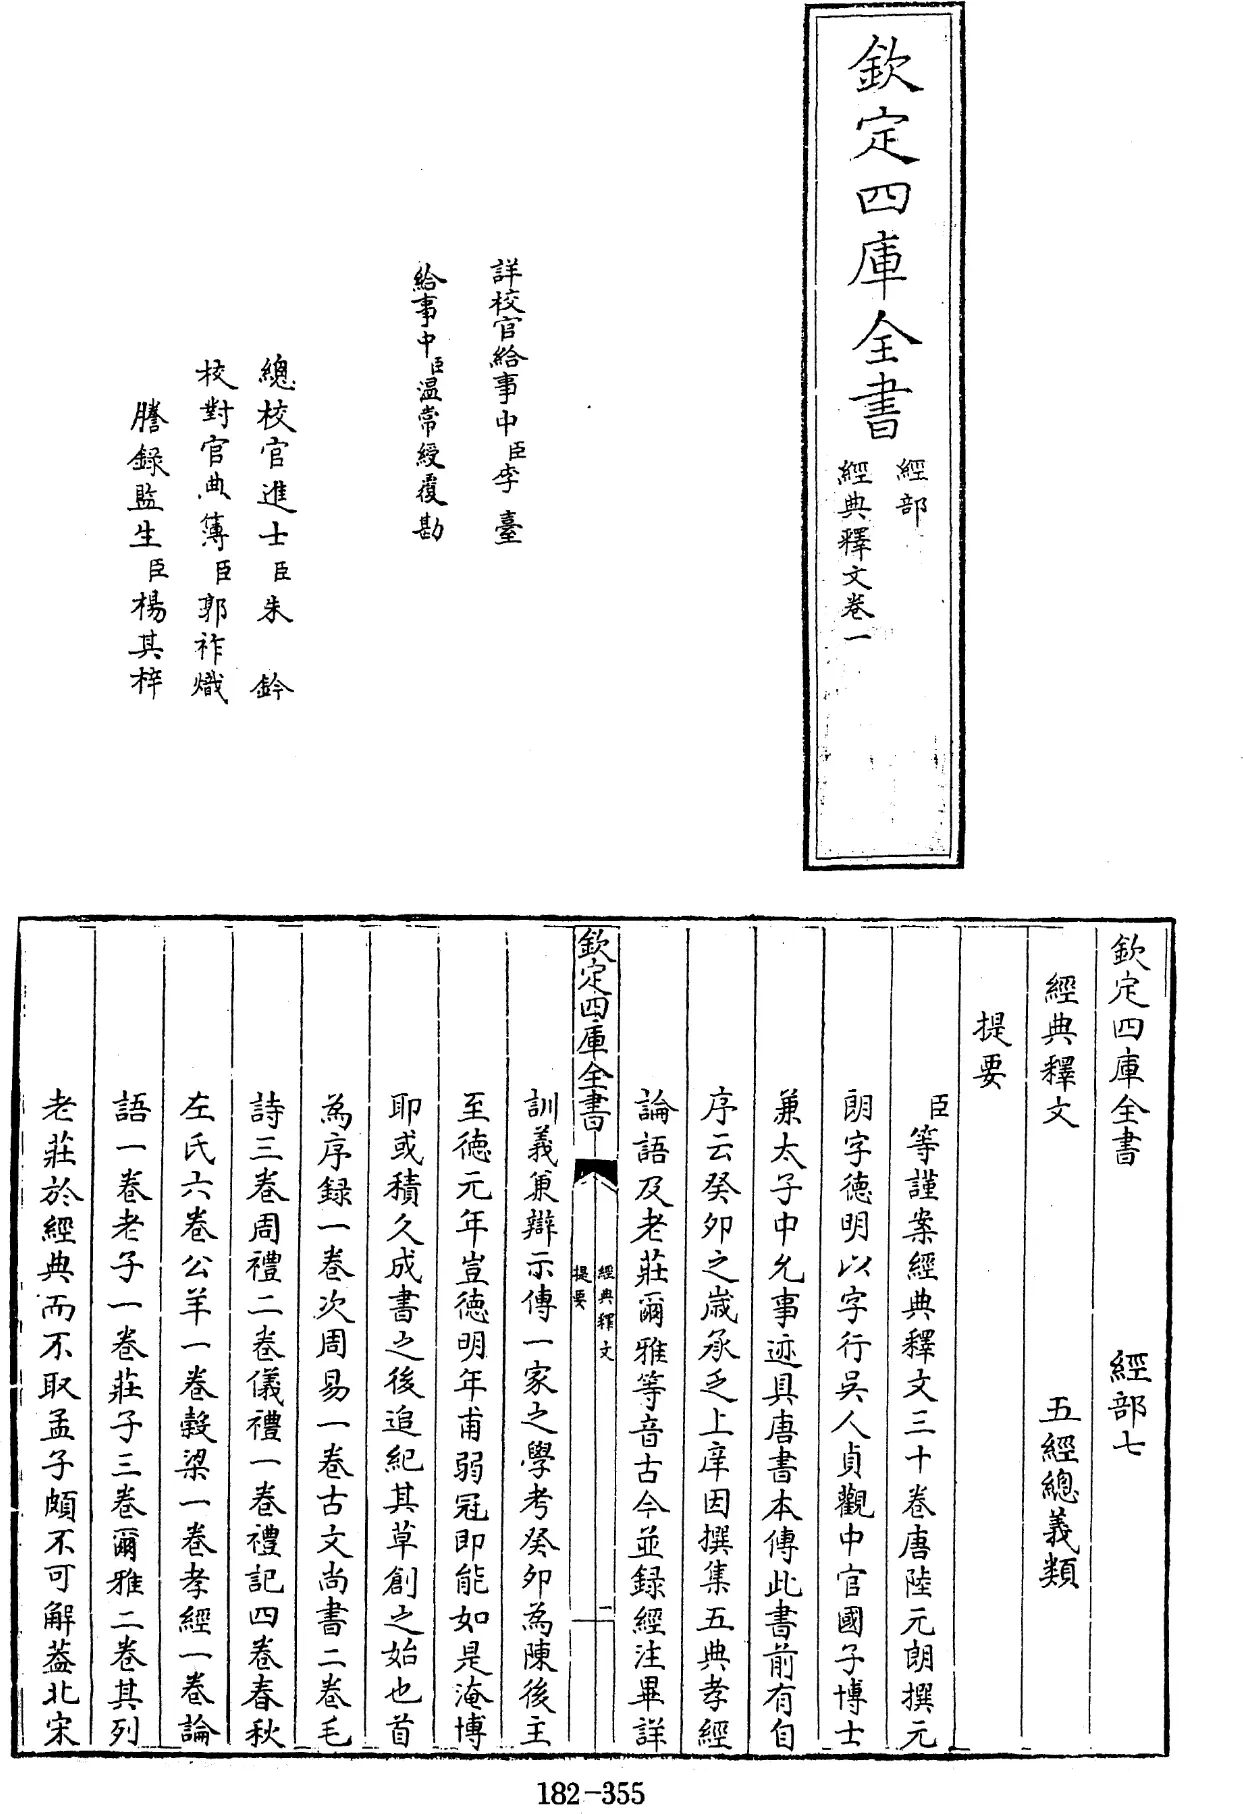 欽定四庫全書
經部
經典釋文卷一
詳校官給事中臣李臺
給事中臣温常綬覆勘
總校官進士臣朱鈐
校對官典簿臣郭祚熾
謄録監生臣楊其梓
欽定四庫全書 經部七
經典釋文 五經總義類
提要
臣等謹案經典釋文三十卷唐陸元朗撰元
朗字德明以字行吳人貞觀中官國子博士
兼太子中允事迹具唐書本傳此書前有自
序云癸卯之歲承乏上庠因撰集五典孝經
論語及老莊爾雅等音古今並録經注畢詳
欽定四庫全書
經典釋文
提要
一
訓義兼辯示傳一家之學考癸卯為陳後主
至德元年豈德明年甫弱冠即能如是淹博
耶或積久成書之後追紀其草創之始也首
為序録一卷次周易一卷古文尚書二卷毛
詩三卷周禮二卷儀禮一卷禮記四卷春秋
左氏六卷公羊一卷穀梁一卷孝經一卷論
語一卷老子一卷莊子三卷爾雅二卷其列
老莊於經典而不取孟子頗不可解葢北宋
182-355